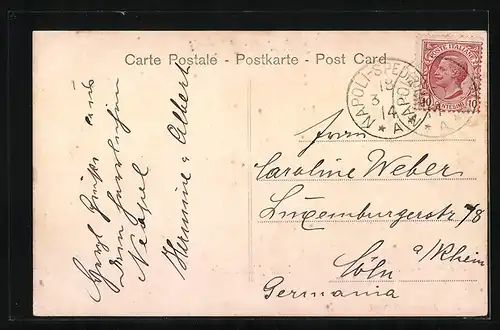 Carte Postale - Postkarte - Post Card
Herzl. Grüsse aus
dem herrlichen
Neapel
Hermine & Albert
POSTE ITALIANE
10 CENTESIMI 10
NAPOLI-SPED
18
3
14
* A *
NAPOLI
Caroline Weber
Luxemburgerstr 78
a/Rhein
Cöln
Germania